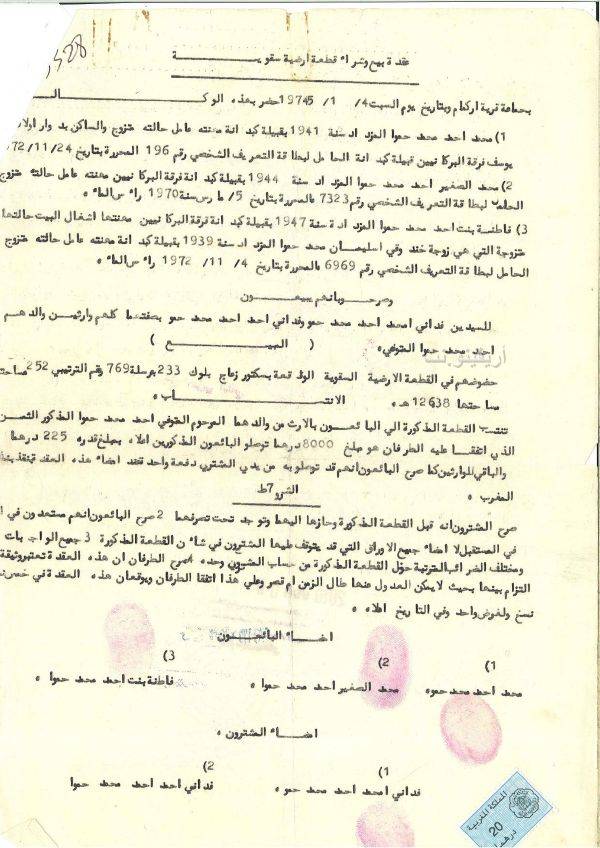 528
عقدة بيع وشراء قطعة ارضية سقوية
بجماعة قرية اركمام وبتاريخ يوم السبت 4/ 1/ 19745 حضر بهذه الوكالة
1) محمد احمد محمد حموا المزداد سنة 1941 بقبيلة كبدانة مهنته عامل حالته متزوج والساكن بدوار اولاد
يوسف فرقة البركانيين قبيلة كبدانة الحامل لبطاقة التعريف الشخصي رقم 196 المحررة بتاريخ 72/11/24
2) محمد الصغير احمد محمد حموا المزداد سنة 1944 بقبيلة كبدانة فرقة البركانيين مهنته عامل حالته متزوج
الحامل لبطاقة التعريف الشخصي رقم 7323 المحررة بتاريخ 5/ مارس سنة 1970 راس الماء
3) فاطنة بنت احمد محمد حموا المزدادة سنة 1947 بقبيلة كبدانة فرقة البركانيين مهنتها اشغال البيت حالتها
متزوجة التي هي زوجة خندوقي اسليمان المزداد سنة 1939 بقبيلة كبدانة مهنته عامل حالته متزوج
الحامل لبطاقة التعريف الشخصي رقم 6969 المحررة بتاريخ 4/ 11/ 1972 راس الماء
وصرحوا بانهم يبيعون
للسيدين فداني امحمد احمد محمد حمو وفداني احمد احمد محمد حمو بصفتهما كلهم وارثين والدهم
احمد محمد حموا المتوفي
( المبيع )
اريفينو.نت
حضوضهم في القطعة الارضية السقوية الواقعة بسكتور زماج بلوك 233 برسلة 769 رقم الترتيبي 252 مساحتها
مساحتها 12638 هـ
الانتساب
تنتسب القطعة المذكورة الى البائعون بالارث من والدهما المرحوم المتوفي احمد محمد حموا المذكور الثمن
الذي اتفقا عليه الطرفان هو مبلغ 8000 درهما توصلو البائعون المذكورين اعلاه بمبلغ قدره 225 درهما
والباقي للوارثين كما صرح البائعون انهم قد توصلو به من يدي المشتري دفعة واحد تحند امضاء هذه العقد
المغرب
الشرو7ط
صرح المشترون انه قبل القطعة المذكورة وحازها اليهما وتوجد تحت تصرفهما 2 صرح البائعون انهم مستعدون في
في المستقبل لامضاء جميع الاوراق التي قد يتوقف عليها المشترون في شاءن القطعة المذكورة 3 جميع الواجبات
ومختلف الضرائب المترتبة حول القطعة المذكورة من حساب المشترون وحده صرح الطرفان ان هذه العقدة تعتبر وثيقة
التزام بينها بحيث لا يمكن العدول عنها طال الزمن ام قصر وعلي هذا اتفقا الطرفان ويوقعان هذه العقدة في خمس
نسخ ولغرض واحد وفي التاريخ اعلاه
امضاء البائعون
1) 2) 3)
محمد احمد محمد حموه محمد الصغير احمد محمد حموا فاطنة بنت احمد محمد حموا
امضاء المشترون
1) 2)
فداني امحمد احمد محمد حموه فداني احمد احمد محمد حموا
المملكة المغربية
20
درهما